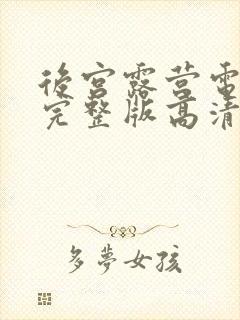 後宮露营電
完整版高清
多夢女孩